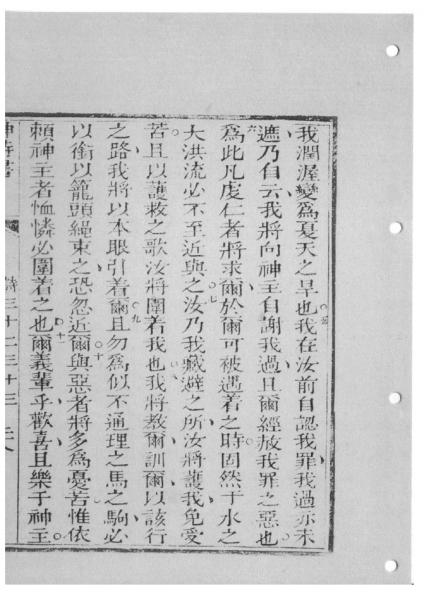 我潤渥變爲夏天之旱也五我在汝前自認我罪我過亦未
遮乃自云我將向神主自謝我過且爾經赦我罪之惡也
六爲此凡虔仁者將求爾於爾可被遇着之時固然十水之
大洪流必不至近與之七汝乃我藏避之所汝將護我免受
苦且以護救之歌汝將圍着我也八我將教爾訓爾以該行
之路我將以本眼引着爾九且勿爲似不通理之馬之駒必
以銜以籠頭繩束之恐忽近爾與十惡者將多爲憂苦惟依
賴神主者恤憐必圍着之也十一爾義輩乎歡喜且樂于神主
神詩書 詩三十二三十三